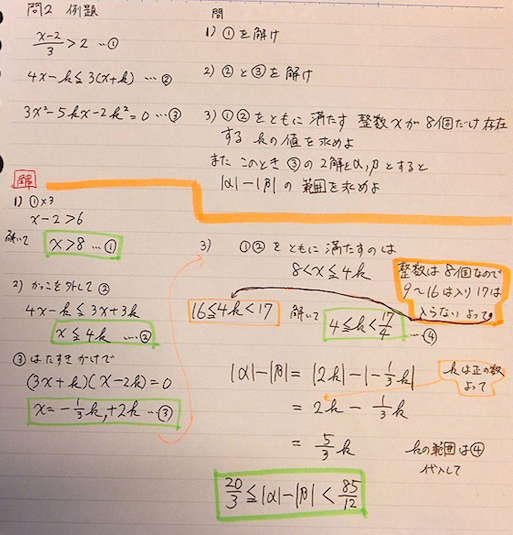 問2 例題
(x-2)/3 > 2 …①
4x-k≦3(x+k) …②
3x²-5kx-2k²=0 …③
問
1) ①を解け
2) ②と③を解け
3) ①②をともに満たす 整数xが8個だけ存在
する kの値を求めよ
また このとき ③の2解をα,βとすると
|α|-|β| の 範囲を求めよ
解
1) ①×3
x-2>6
解いて x>8 …①
2) かっこを外して②
4x-k≦3x+3k
x≦4k …②
③はたすきかけで
(3x+k)(x-2k)=0
x=-1/3k,+2k …③
3) ①②をともに満たすのは
8<x≦4k
整数は8個なので
9~16は入り17は
入らない よって
16≦4k<17 解いて 4≦k<17/4 …④
|α|-|β|=|2k|-|-1/3k|
kは正の数
よって
= 2k - 1/3k
= 5/3k
kの範囲は④
代入して
20/3≦|α|-|β|<85/12